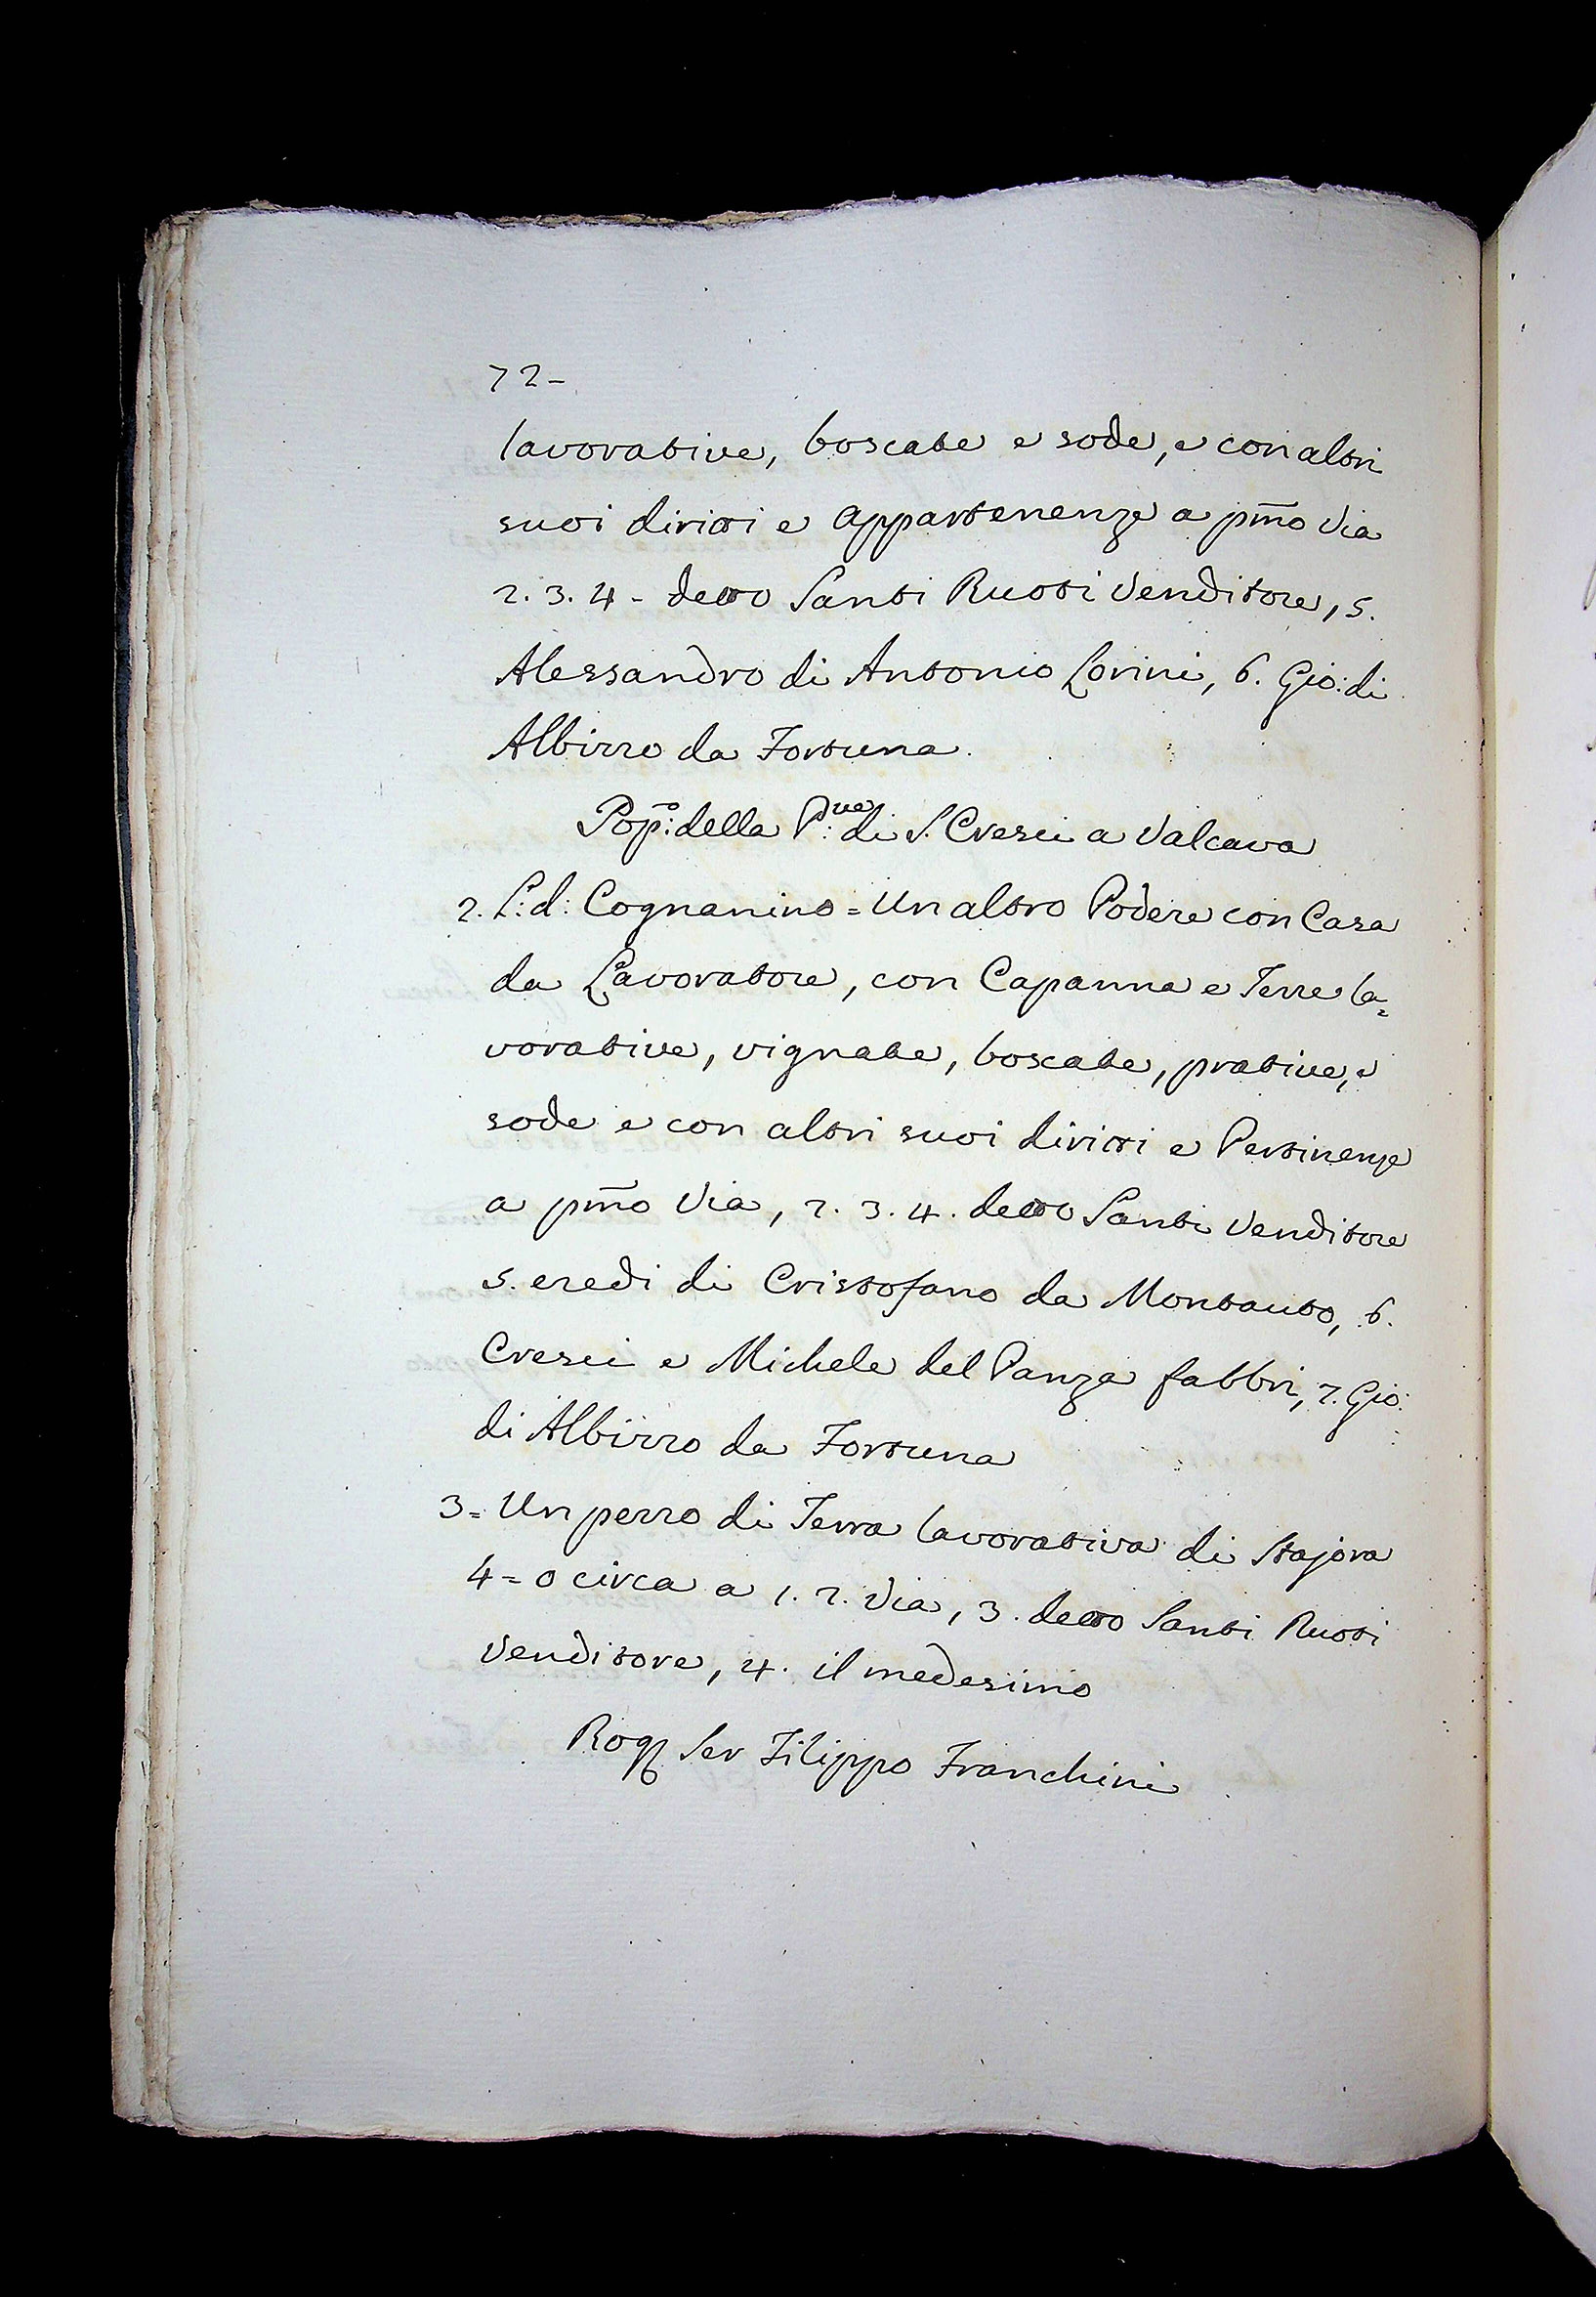 72-
lavorative, boscate e sode, e con altri
suoi diritti e appartenenze a pm̃o Via
2. 3. 4 - detto Santi Ruoti Venditore, 5.
Alessandro di Antonio Lorini, 6. Gio: di
Albizzo da Fortuna.
Pop:õ della P:ve di S. Cresci a Valcava
2. L: d: Cognanino = Un altro Podere con Casa
da Lavoratore, con Capanna e Terre la=
vorative, vignate, boscate, prative, e
sode e con altri suoi diritti e Pertinenze
a pm̃o Via, 2. 3. 4. detto Santi Venditore
5. eredi di Cristofano da Montauto, 6.
Cresci e Michele del Panza fabbri, 7. Gio:
di Albizzo da Fortuna
3= Un pezzo di Terra lavorativa di Stajora
4=0 circa a 1. 2. Via, 3. detto Santi Ruoti
Venditore, 4. il medesimo
Rog Ser Filippo Franchini